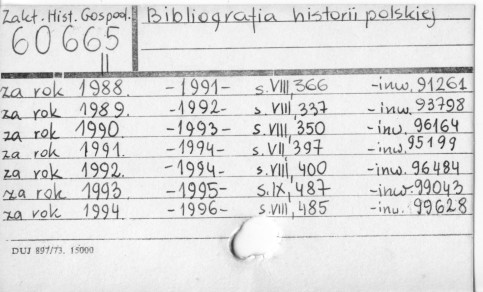 Zakł. Hist. Gospod.
Bibliografia historii polskiej
60665
II
za rok 1988. -1991- s. VIII, 366 -inw. 91261
za rok 1989. -1992- s. VIII, 337 -inw. 93798
za rok 1990. -1993- s. VIII, 350 -inw. 96164
za rok 1991. -1994- s. VII 397 -inw. 95199
za rok 1992. -1994- s. VIII, 400 -inw. 96484
za rok 1993. -1995- s. IX, 487 -inw. 99043
za rok 1994. -1996- s. VIII, 485 -inw. 99628
DUJ 897/73. 15000